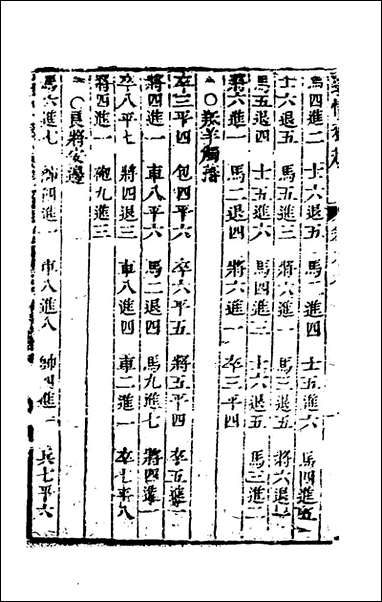 馬四進二　士六退五　馬二進四　士五進六　馬四進五
士六退五　馬五進三　將六進一　馬三進五　將六退一
馬五退四　士五進六　馬四進三　士六退五　馬三進二
將六進一　馬二退四　將六進一　卒三平四
○羝羊觸藩
卒三平四　包四平六　卒六平五　將五平四　卒五進一
將四進一　車八平六　馬二退四　馬九進七　將四進一
卒八平七　將四退三　車八進四　車二進一　卒七平八
將四進一　砲九進三
○良將安邊
馬六進七　帥四進一　車八進八　帥四進一　兵七平六